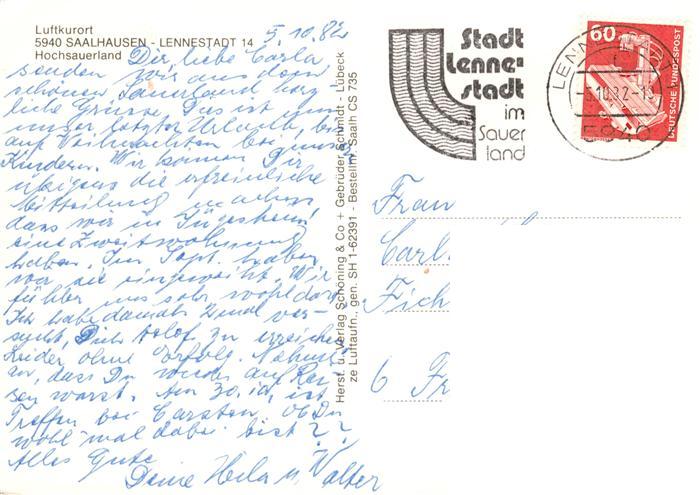 Luftkurort
5940 SAALHAUSEN - LENNESTADT 14
Hochsauerland
5.10.82
Dir, liebe Carla
senden wir aus dem
schönen Sauerland herz-
liche Grüsse. Das ist nun
unser letzter Urlaub, bis
auf Weihnachten bei unsern
Kindern. Wir können Dir
übrigens die erfreuliche
Mitteilung machen
dass wir in
eine Zweitwohnung
haben. Im Sept. haben
wir sie eingeweiht. Wir
fühlen uns sehr wohl dort
Ich habe damals 2 mal ver-
sucht, Dich telef. zu erreichen
Leider ohne Erfolg. Nehme
an, dass Du wieder auf Rei-
sen warst. Am 30. ist
Treffen bei Carsten. Ob Du
wohl mal dabei bist??
Alles Gute
Deine Hela u. Walter
Herst. u. Verlag Schöning & Co + Gebrüder Schmidt - Lübeck
ze Luftaufn., gen. SH 1-62391 - Bestellnr. Saalh CS 735
Stadt
Lenne-
stadt
im
Sauer
land
LENNE
-5.10.82-18
5940
60
DEUTSCHE BUNDESPOST
Frau
Carl.
Fich
6 Fr